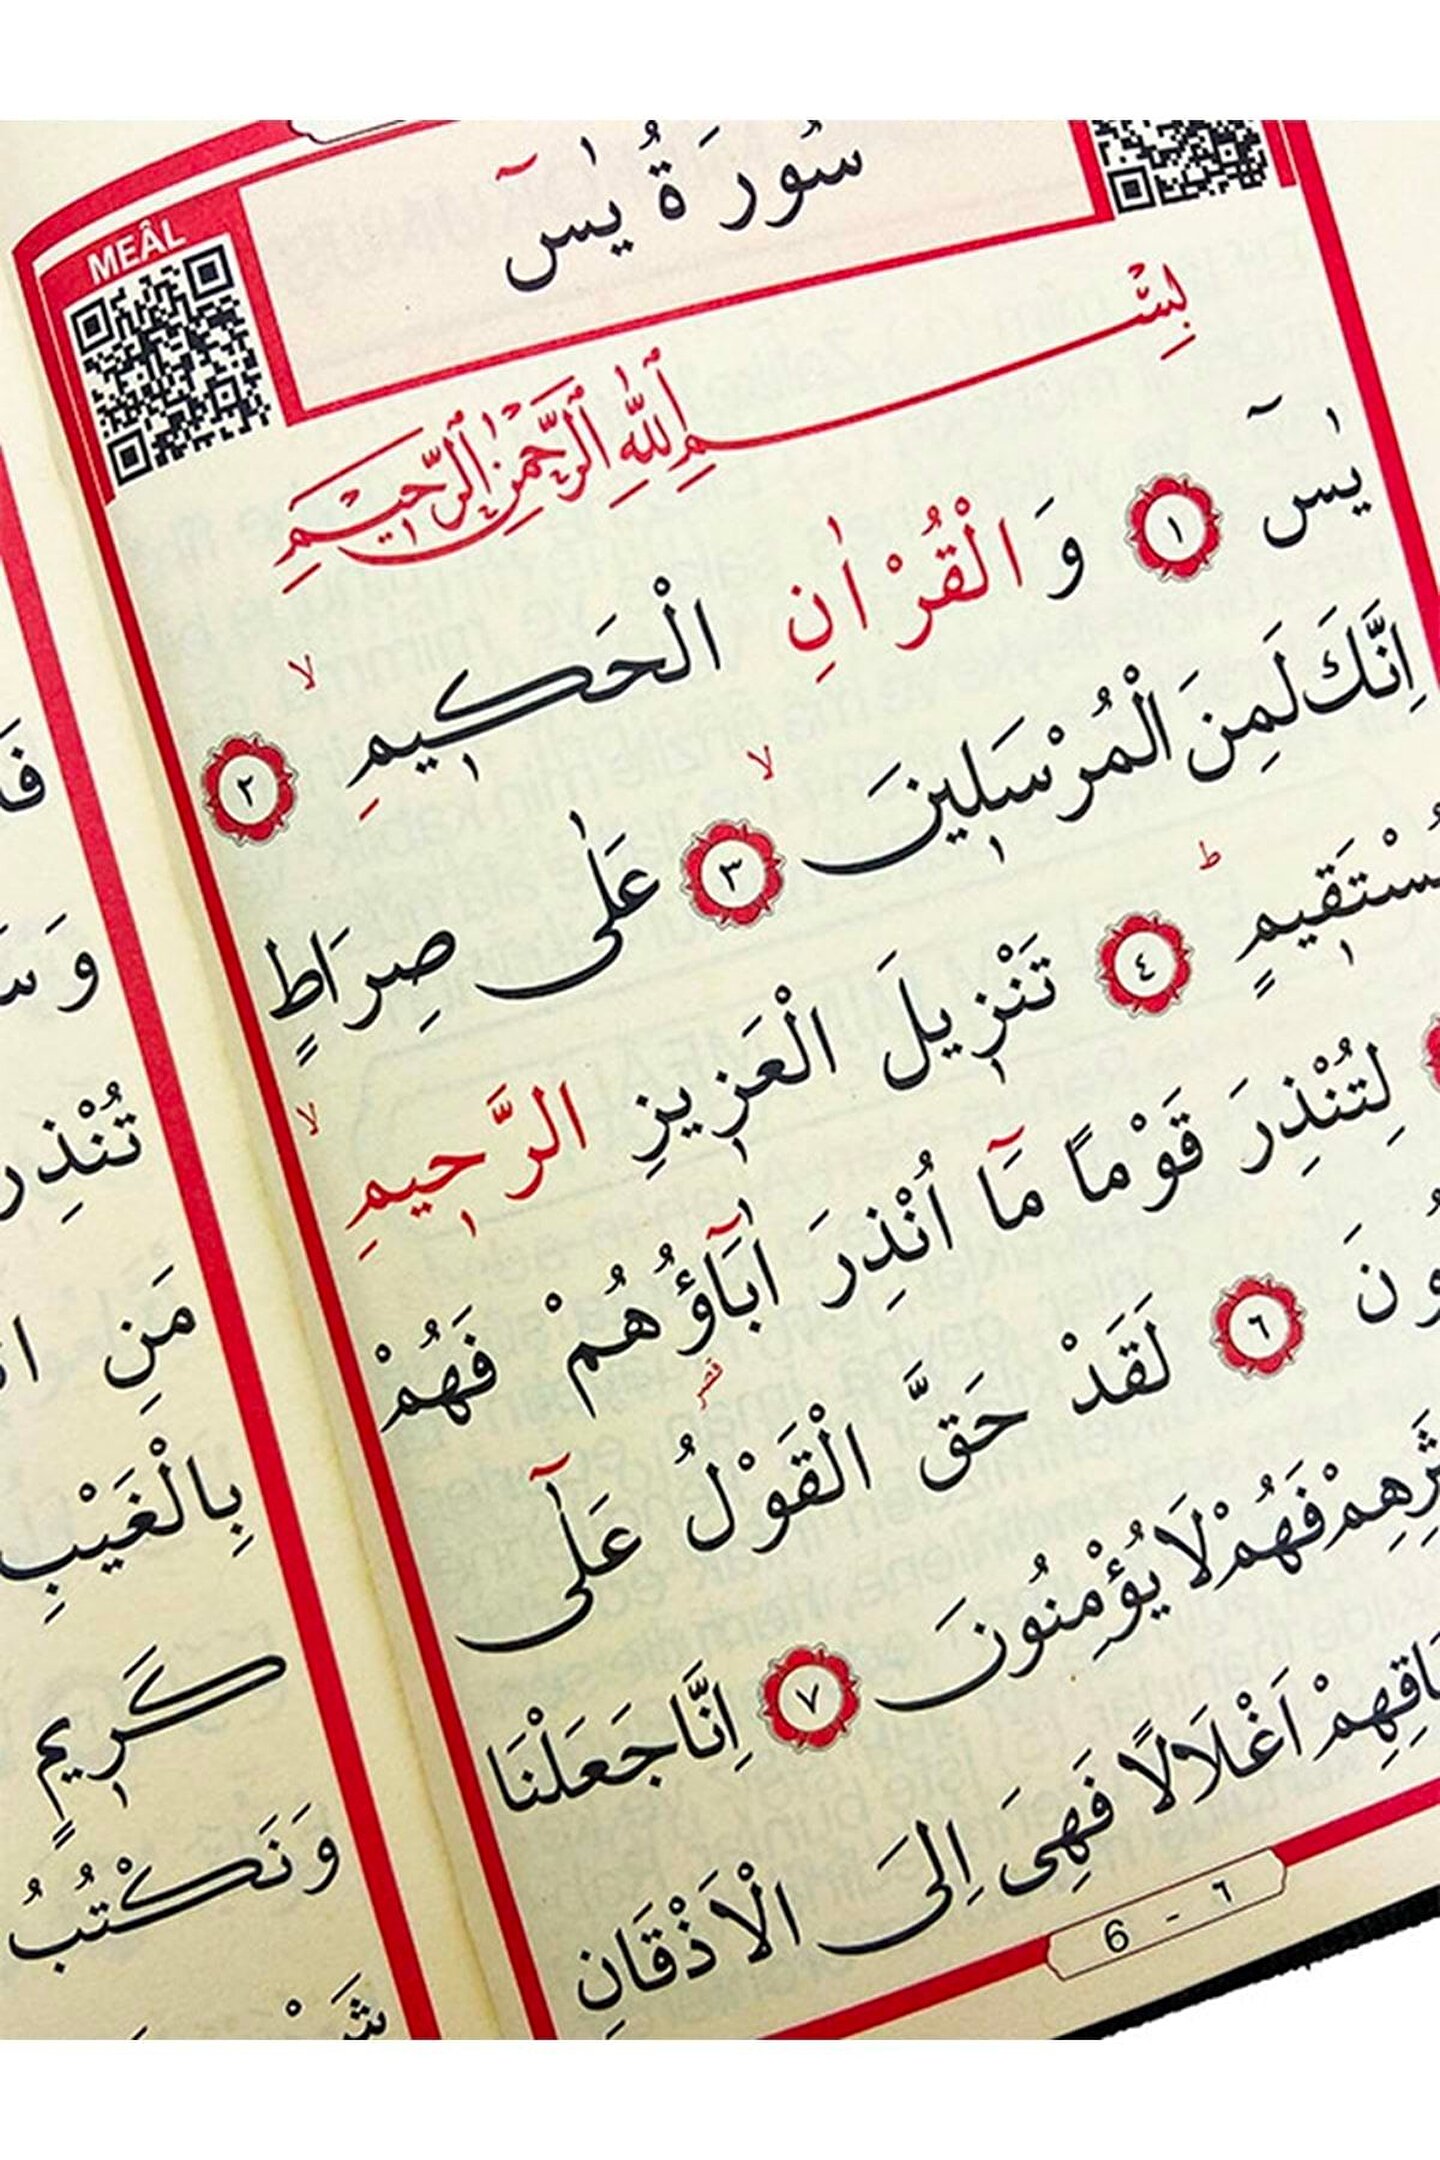 سُورَةُ يٰسٓ
MEÂL
بِسْمِ اللّٰهِ الرَّحْمٰنِ الرَّحِيمِ
يٰسٓ ﴿١﴾ وَالْقُرْاٰنِ الْحَكِيمِ ۙ ﴿٢﴾
اِنَّكَ لَمِنَ الْمُرْسَلِينَ ۙ ﴿٣﴾ عَلٰى صِرَاطٍ
مُسْتَقِيمٍ ۜ ﴿٤﴾ تَنْزِيلَ الْعَزِيزِ الرَّحِيمِ ۙ
لِتُنْذِرَ قَوْمًا مَٓا اُنْذِرَ اٰبَٓاؤُ۬هُمْ فَهُمْ
ُونَ ﴿٦﴾ لَقَدْ حَقَّ الْقَوْلُ عَلٰٓى
ثَرِهِمْ فَهُمْ لَا يُؤْمِنُونَ ﴿٧﴾ اِنَّا جَعَلْنَا
اقِهِمْ اَغْلَالًا فَهِىَ اِلَى الْاَذْقَانِ
6 - ٦
تُنْذِرُ
مَنِ
بِالْغَيْبِ
كَرِيمٍ
وَنَكْتُبُ